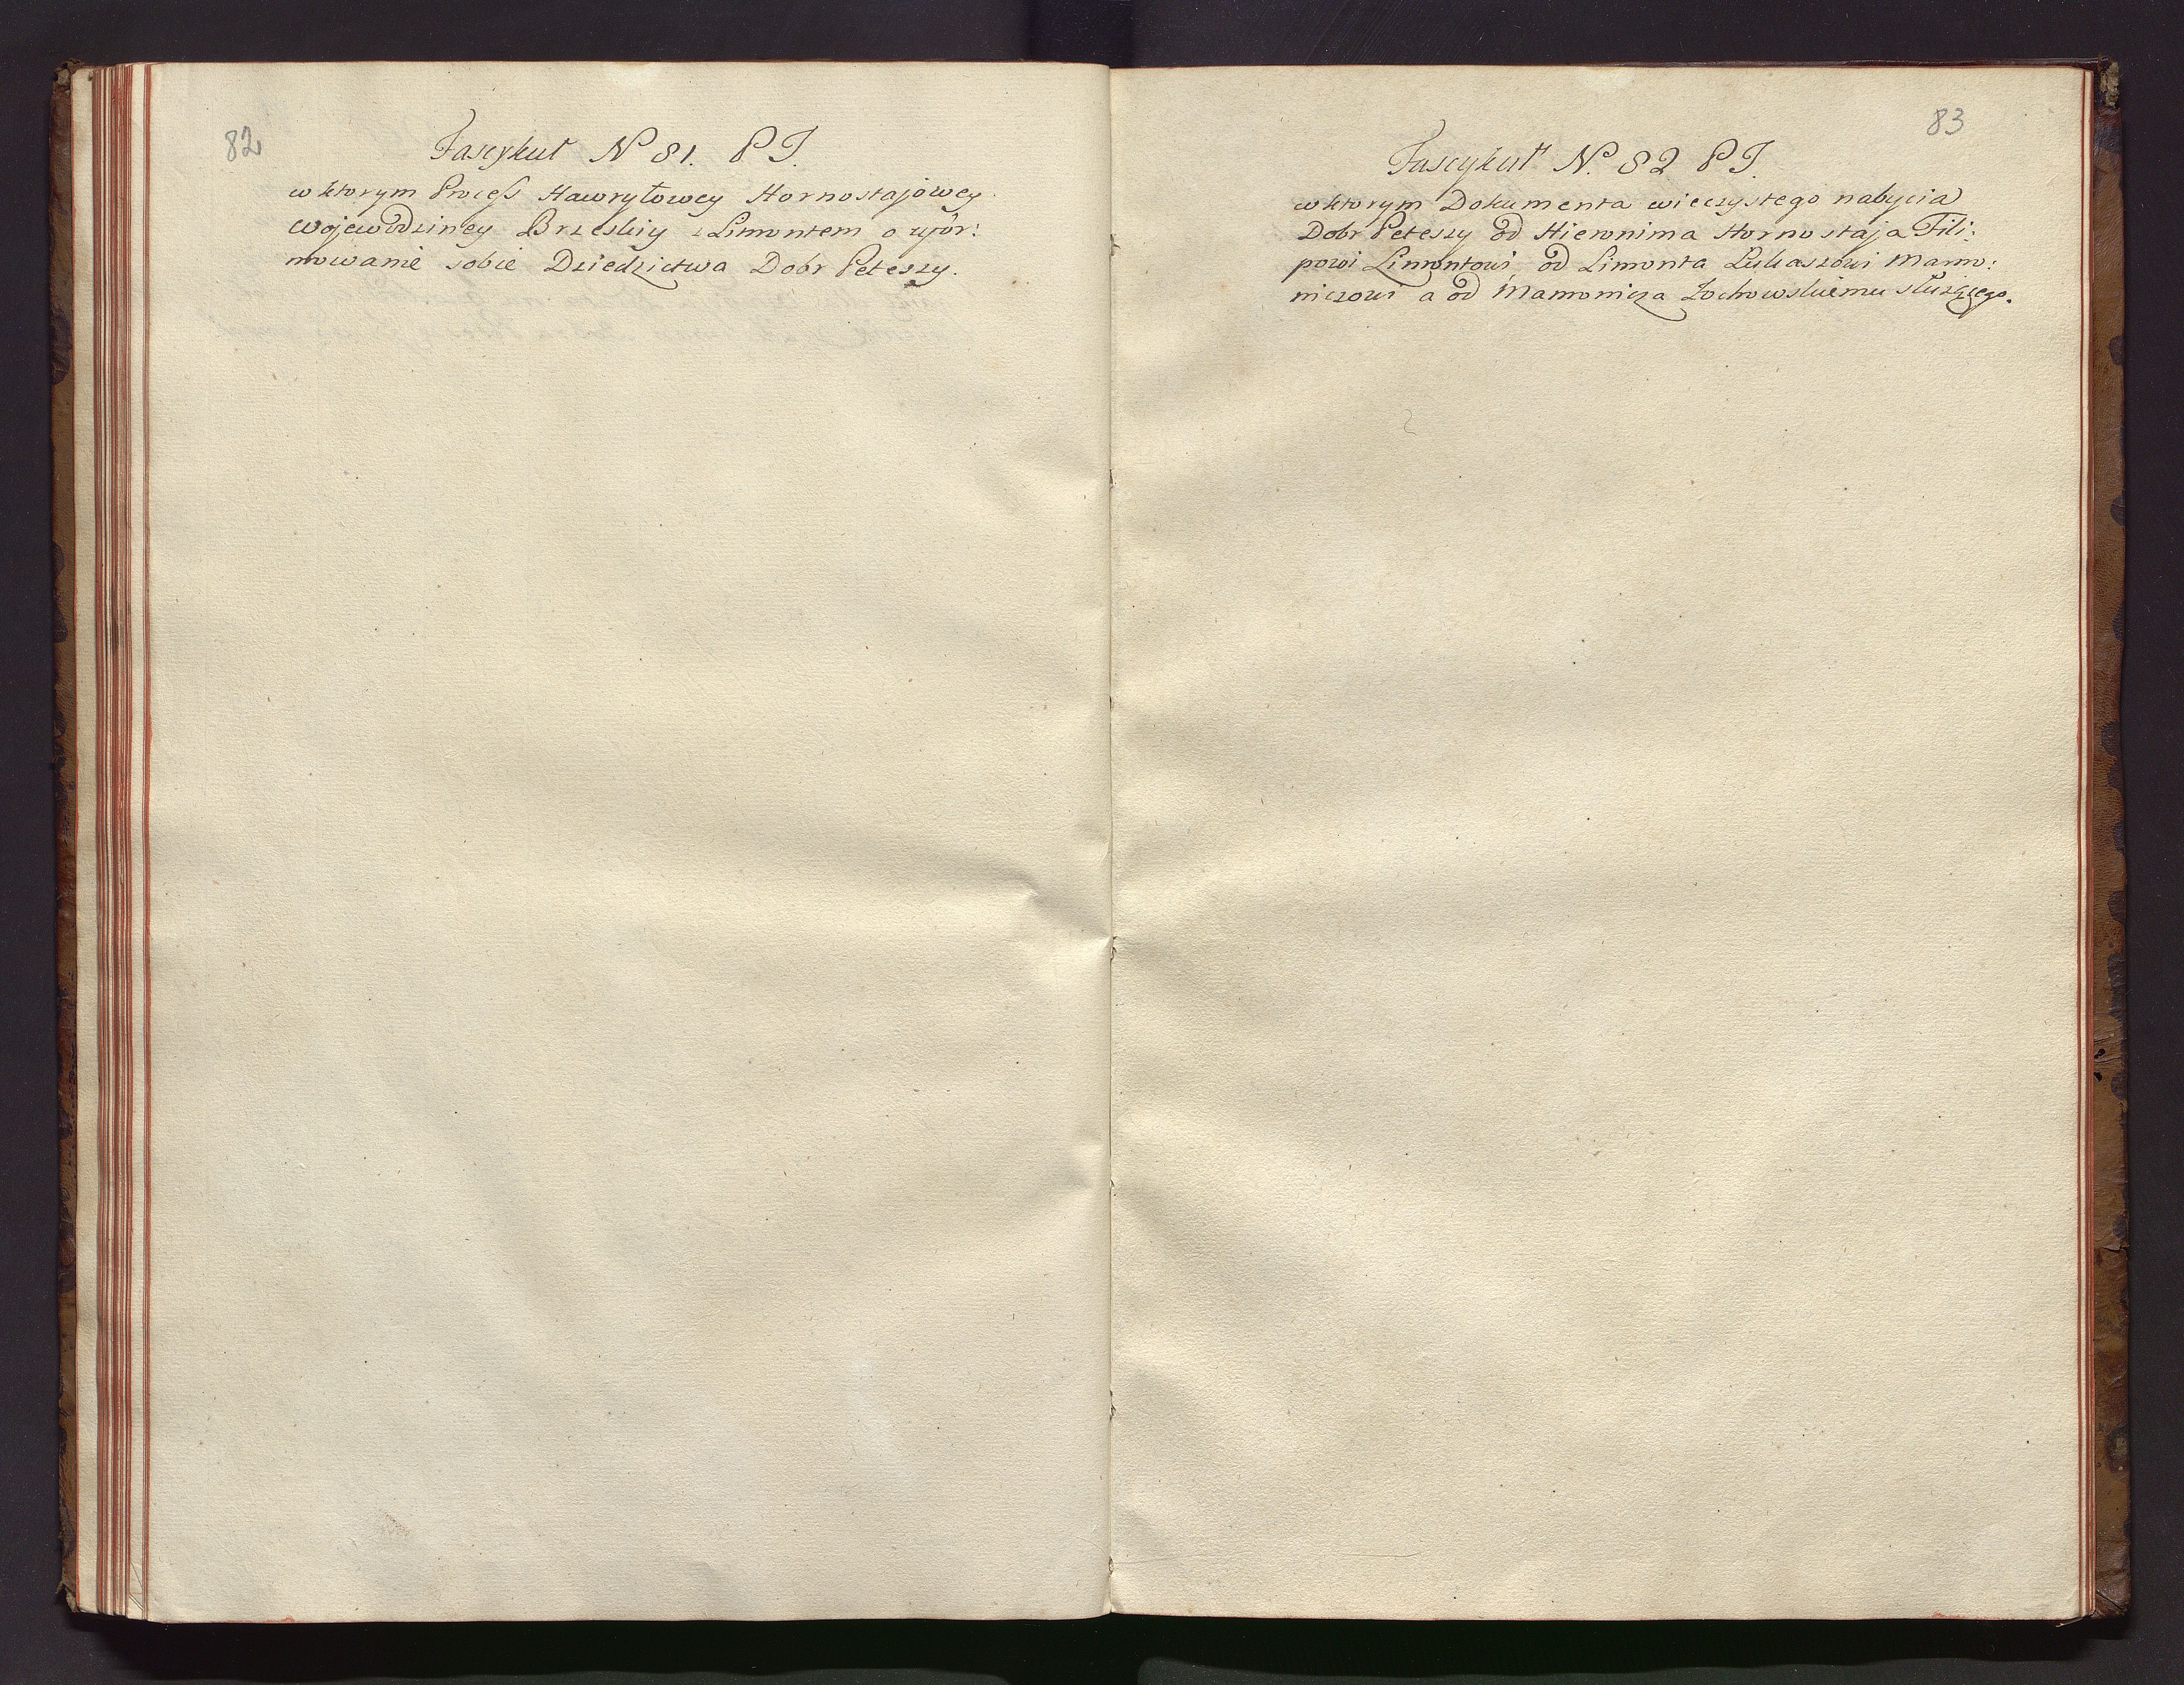 82
Fascykuł N 81. P I.
w ktorym Process Hawryłowey Hornostajowey
Wojewodziney Brzeskiey z Limontem o ufor:
mowanie sobie Dziedzictwa Dobr Peteszy.
83
Fascykuł N. 82 P I.
w ktorym Dokumenta wieczystego nabycia
Dobr Peteszy od Hieronima Hornostaja Fili:
powi Limontowi od Limonta Łukaszowi Mamo:
niczowi a od Mamonicza Żochowskiemu służącego.